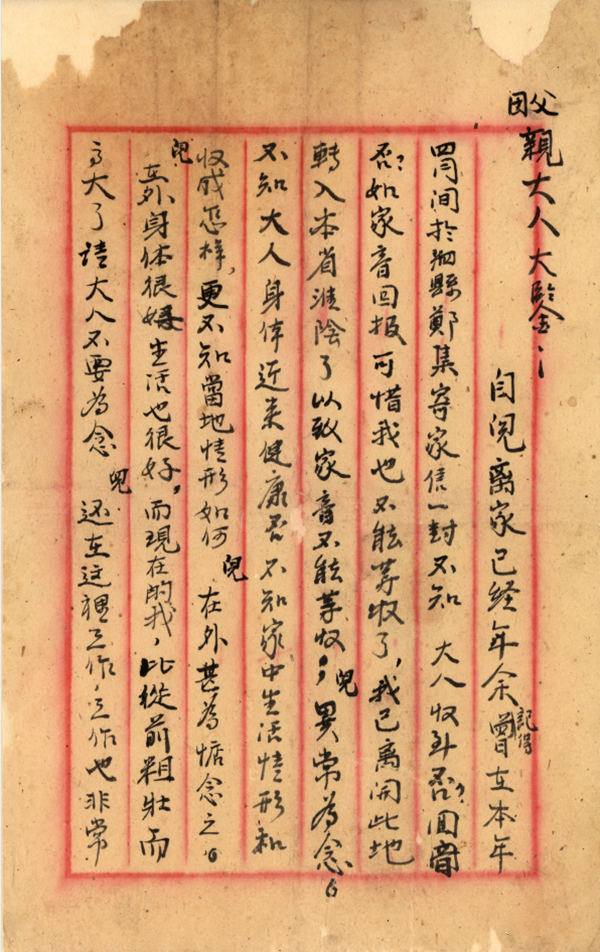 父
親大人大鑒：
自兒离家已经年余記得曾在本年
四月间於泗縣鄭集寄家信一封不知 大人收到否?回音
否?如家音回报可惜我也不能等收了,我已离開此地
轉入本省淮陰了以致家音不能等收,兒異常為念。
不知大人身体近来健康否不知家中生活情形和
收成怎样,更不知當地情形如何 兒在外甚為惦念之。
兒在外身体很好生活也很好,而現在的我,比從前粗壮而
高大了請大人不要為念 兒还在这裡工作,工作也非常